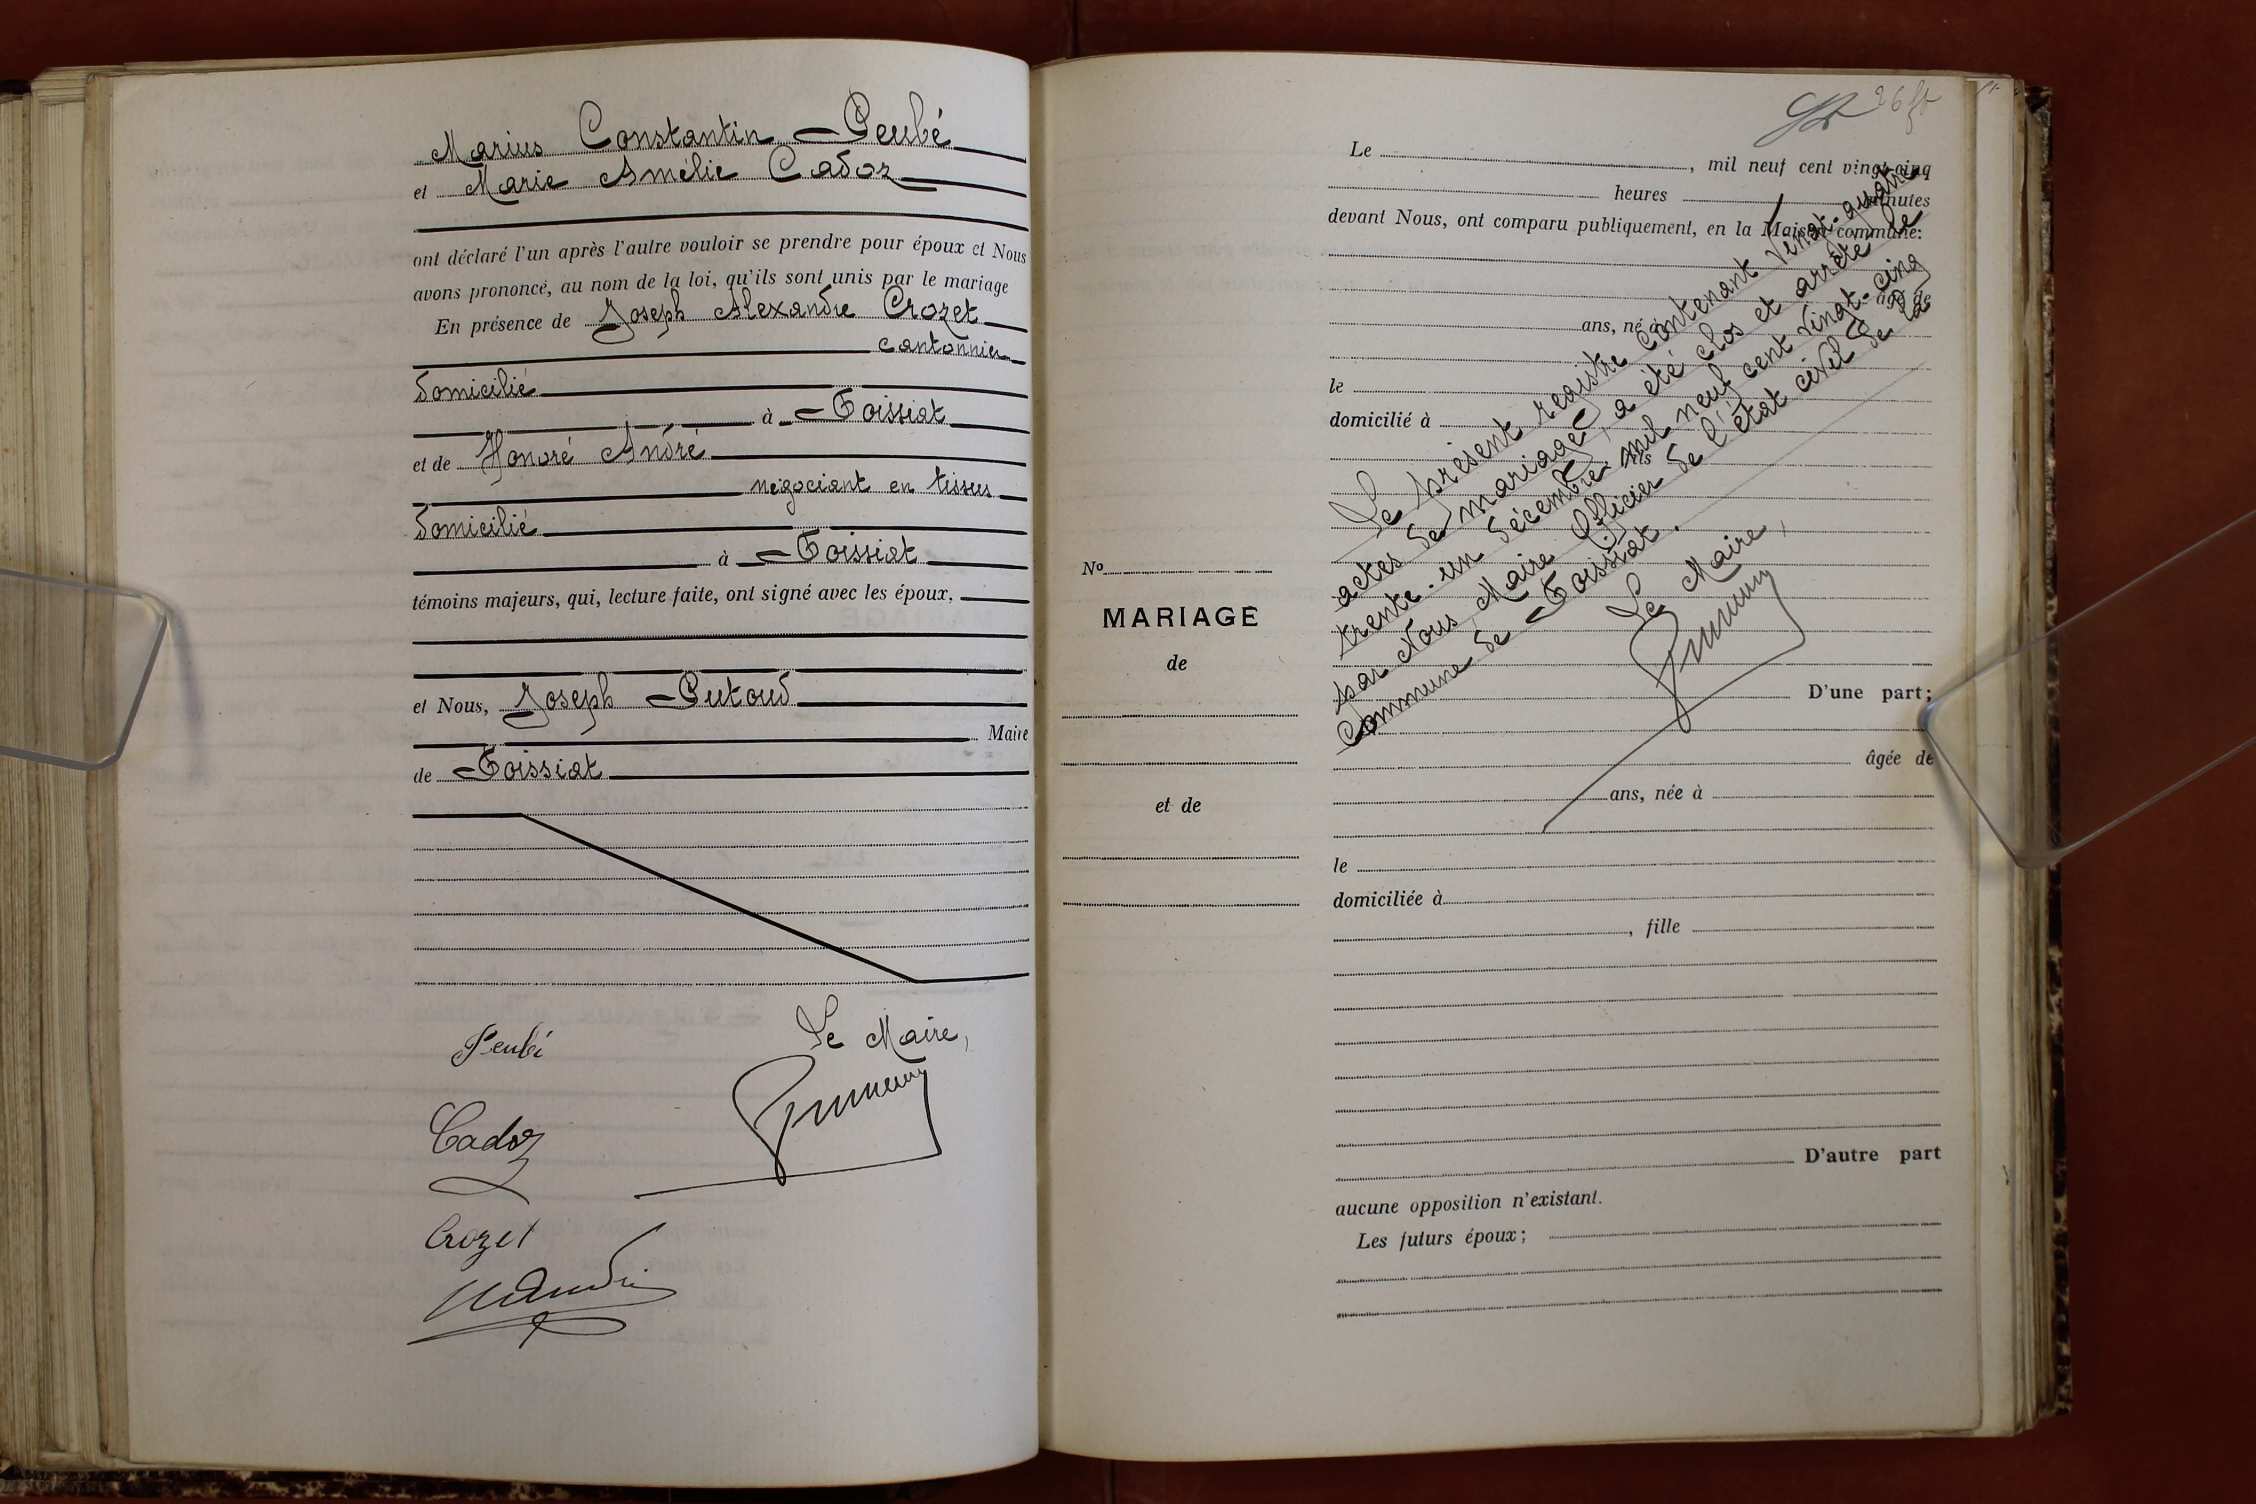 Marius Constantin Peubé
et Marie Amélie Cadoz
ont déclaré l'un après l'autre vouloir se prendre pour époux et Nous
avons prononcé, au nom de la loi, qu'ils sont unis par le mariage
En présence de Joseph Alexandre Crozet
cantonnier
domicilié
à Toissiat
et de Honoré André
négociant en tissus
domicilié
à Toissiat
témoins majeurs, qui, lecture faite, ont signé avec les époux,
et Nous, Joseph Putoud
Maire
de Toissiat
Peubé
Le Maire,
Cadoz
Crozet
26
Le , mil neuf cent vingt-cinq
heures minutes
devant Nous, ont comparu publiquement, en la Maison commune:
âgé de
ans, né à
le
domicilié à
fils
Le présent registre contenant Vingt-quatre
actes de mariage, a été clos et arrêté le
trente-un décembre mil neuf cent vingt-cinq
par Nous, Maire Officier de l'état civil de la
Commune de Toissiat.
Le Maire,
No
MARIAGE
de
et de
D'une part;
âgée de
ans, née à
le
domiciliée à
, fille
D'autre part
aucune opposition n'existant.
Les futurs époux;